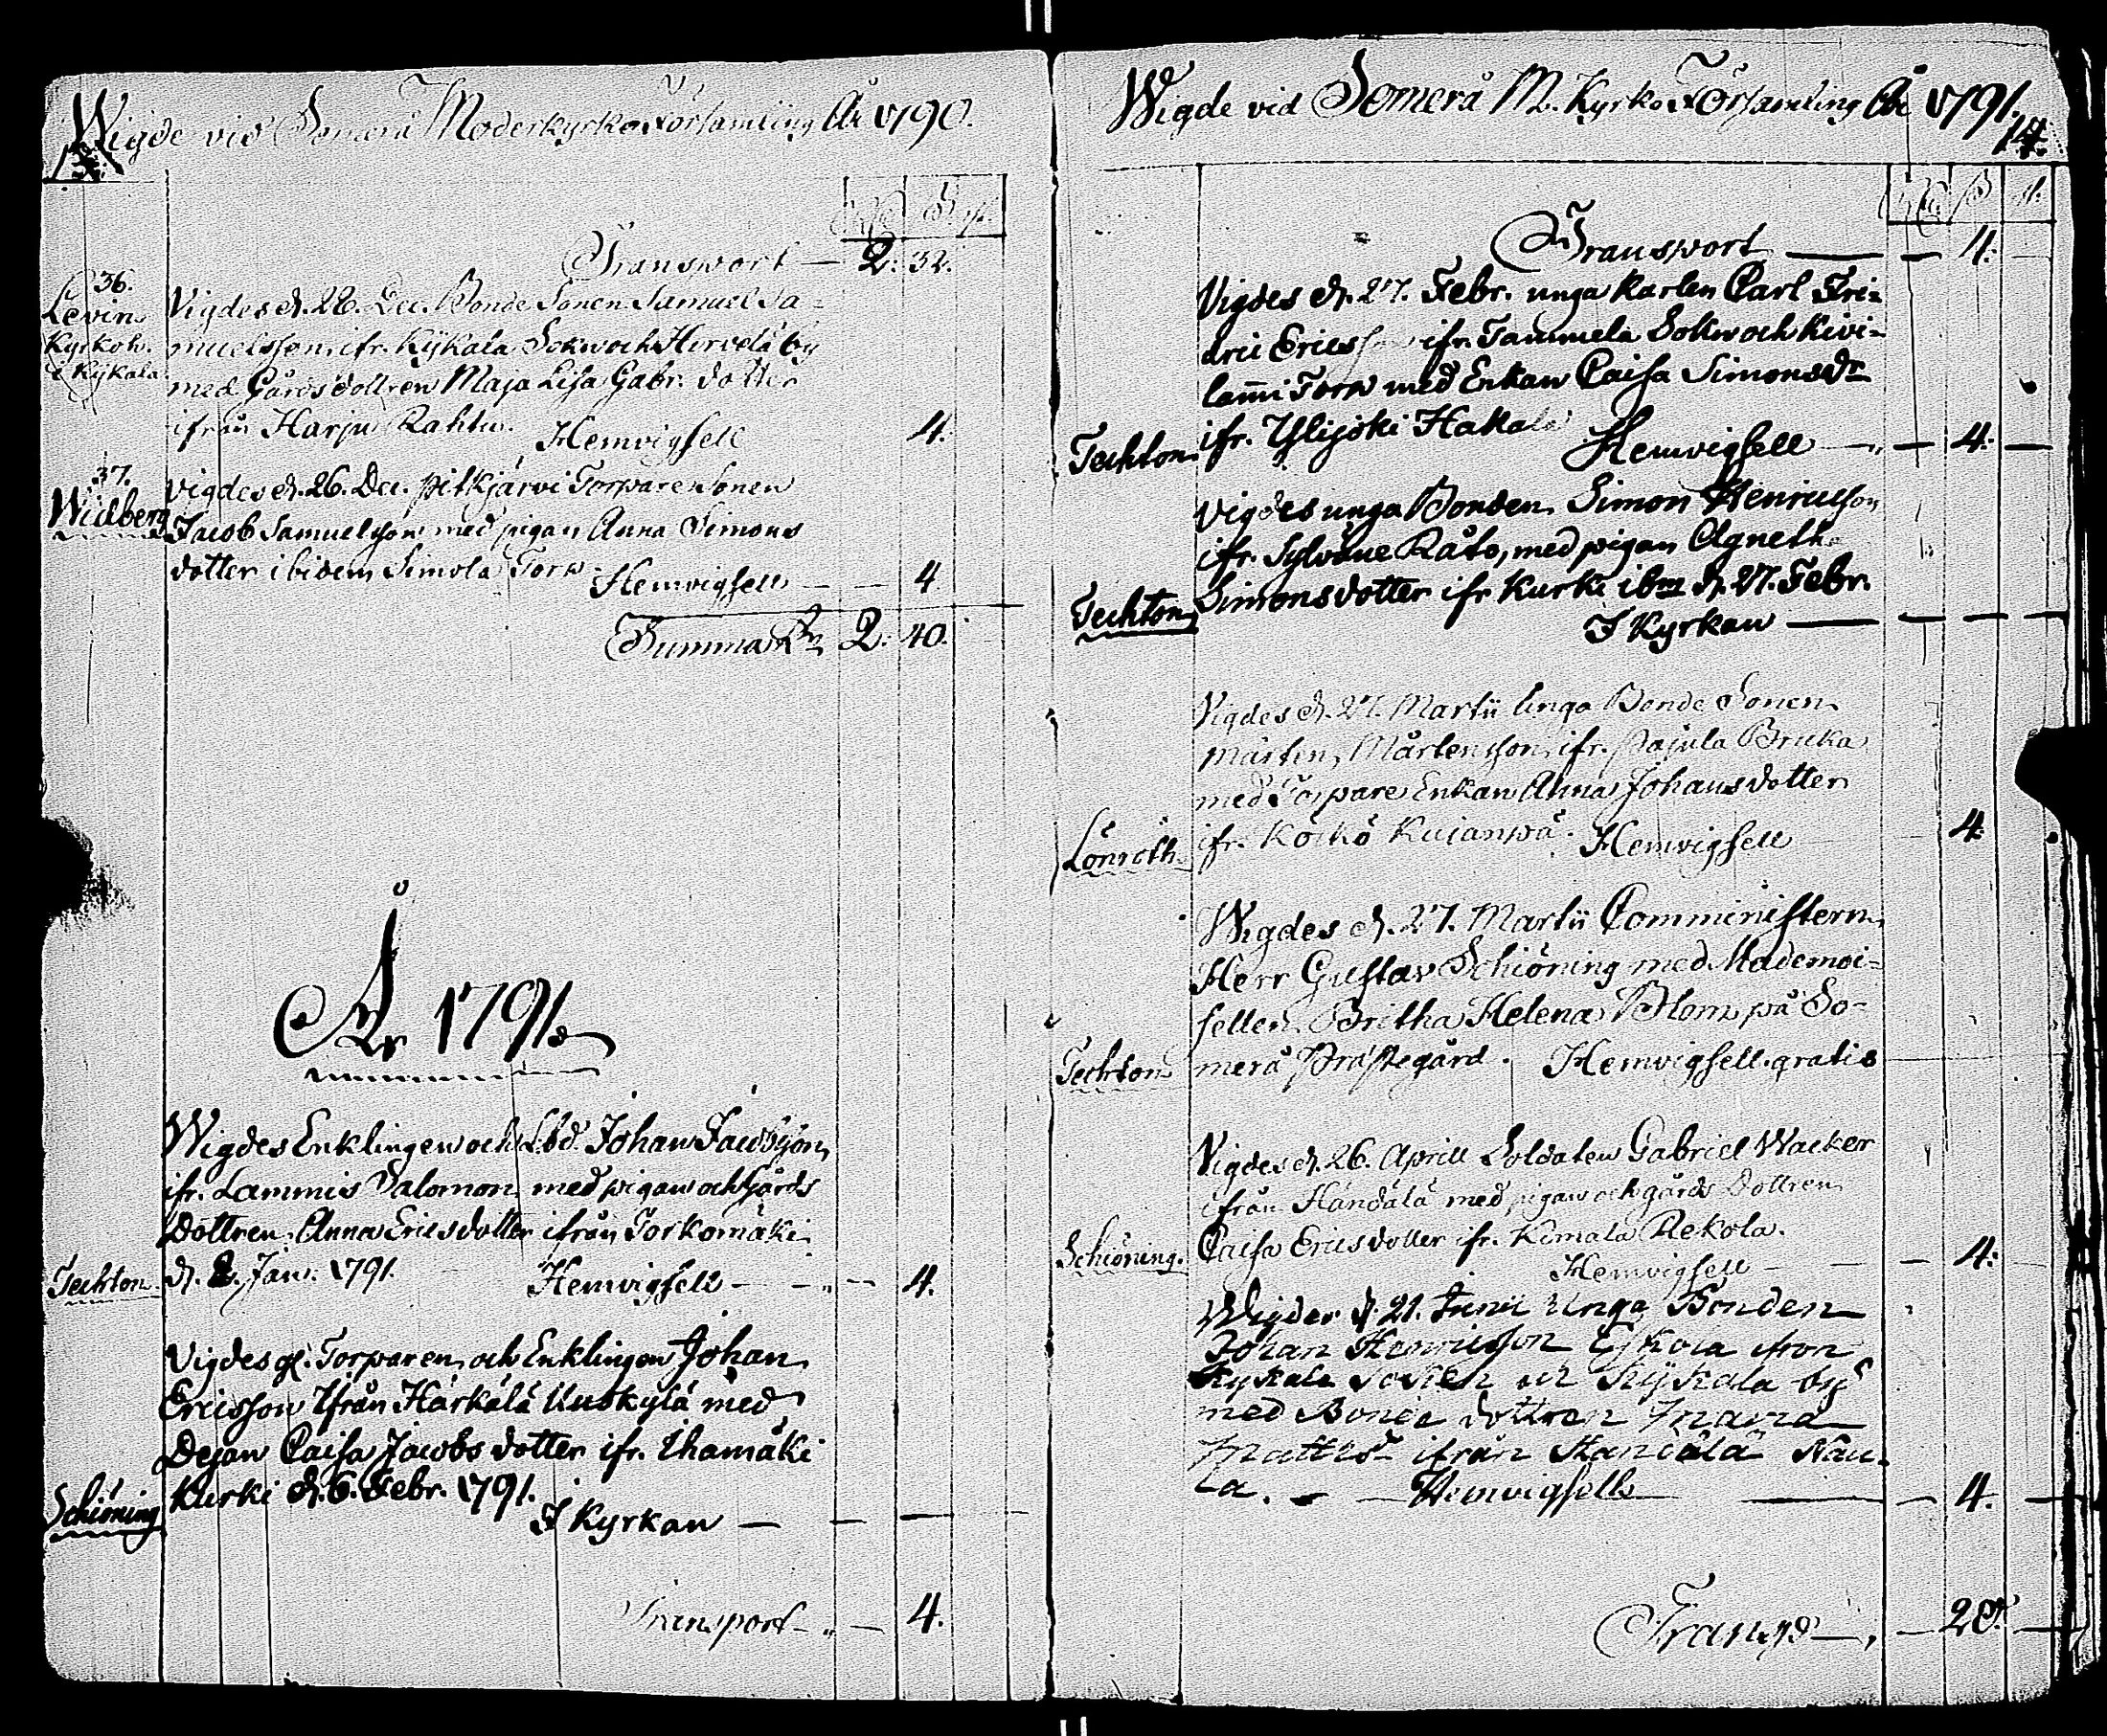 Wigde vid Somerå Moderkyrko Församling År 1790.
13.
Rdr ß rst.
Transport — 2: 32.
36.
Levin
Kyrkoh.
i Kykala
Vigdes d. 26. Dec. Bonde Sonen Samuel Sa-
muelsson, ifr. Kykala Sokn och Hirvelä by
med Gårds dottren Maja Lisa Gabr. dotter
ifrån Harju Rahtu. Hemvigsell 4.
37.
Widberg
Vigdes d. 26. Dec. Pitkjärvi Torpare Sonen
Jacob Samuelsson med pigan Anna Simons
dotter ibidem Simola Torp. Hemvigsell — — 4
Summa Rdr 2: 40.
År 1791.
Wigdes Enklingen och Lbd. Johan Jacobsson,
ifr. Lammis Salomon, med pigan och Gårds
Dottren, Anna Ericsdotter ifrån Torkomäki
Techton. d. 2. Jan. 1791. Hemvigsell — „ — 4.
Vigdes gl. Torparen och Enklingen Johan
Ericsson ifrån Härkälä Uuskylä med
Dejan Caisa Jacobs dotter ifr. Ihamäki
Schiöning Kurki d. 6. Febr. 1791.
I Kyrkan — — — —
Transport — „ — 4.
Wigde vid Somerå M. Kyrko Församling År 1791.
14.
Rdr ß rst.
Transport — — 4.
Vigdes d. 27. Febr. unga Karlen Carl Fri-
dric Ericsson ifr. Tammela Sokn och Kivi-
lammi Torp med Enkan Caisa Simonsdr
Techton. ifr. Ylijoki Hakala Hemvigsell — „ — 4. —
Vigdes unga Bonden Simon Henricsson
ifr. Sylväne Råto, med pigan Agneth.
Techton Simonsdotter ifr Kurki ibm d. 27. Febr.
I Kyrkan — — — —
Vigdes d. 27. Martii Unga Bonde Sonen
Mårten Mårtensson, ifr. Pajula Brucka
med Torpare Enkan Anna Johansdotter
Lönroth. ifr. Koiho Kujanpä. Hemvigsell — 4.
Wigdes d. 27. Martii Comministern,
Herr Gustav Schiöning med Mademoi-
sellen Britha Helena Blom på So-
Techton merå Prästegård. Hemvigsell. gratis
Vigdes d. 26. Aprill Soldaten Gabriel Wacker
ifrån Händälä med pigan och gårds Dottren
Schiöning. Caisa Ericsdotter ifr. Kimala Rekola.
Hemvigsell — — — 4.
Wigdes d. 21. Junii Unga Bonden
Johan Henricsson Eskola ifrån
Kykala Socken och Kykala by
med Bonde dottren Maria
Mattsdr ifrån Händälä Nau-
la. — — Hemvigsell — — 4. —
Transp — „ — 20.